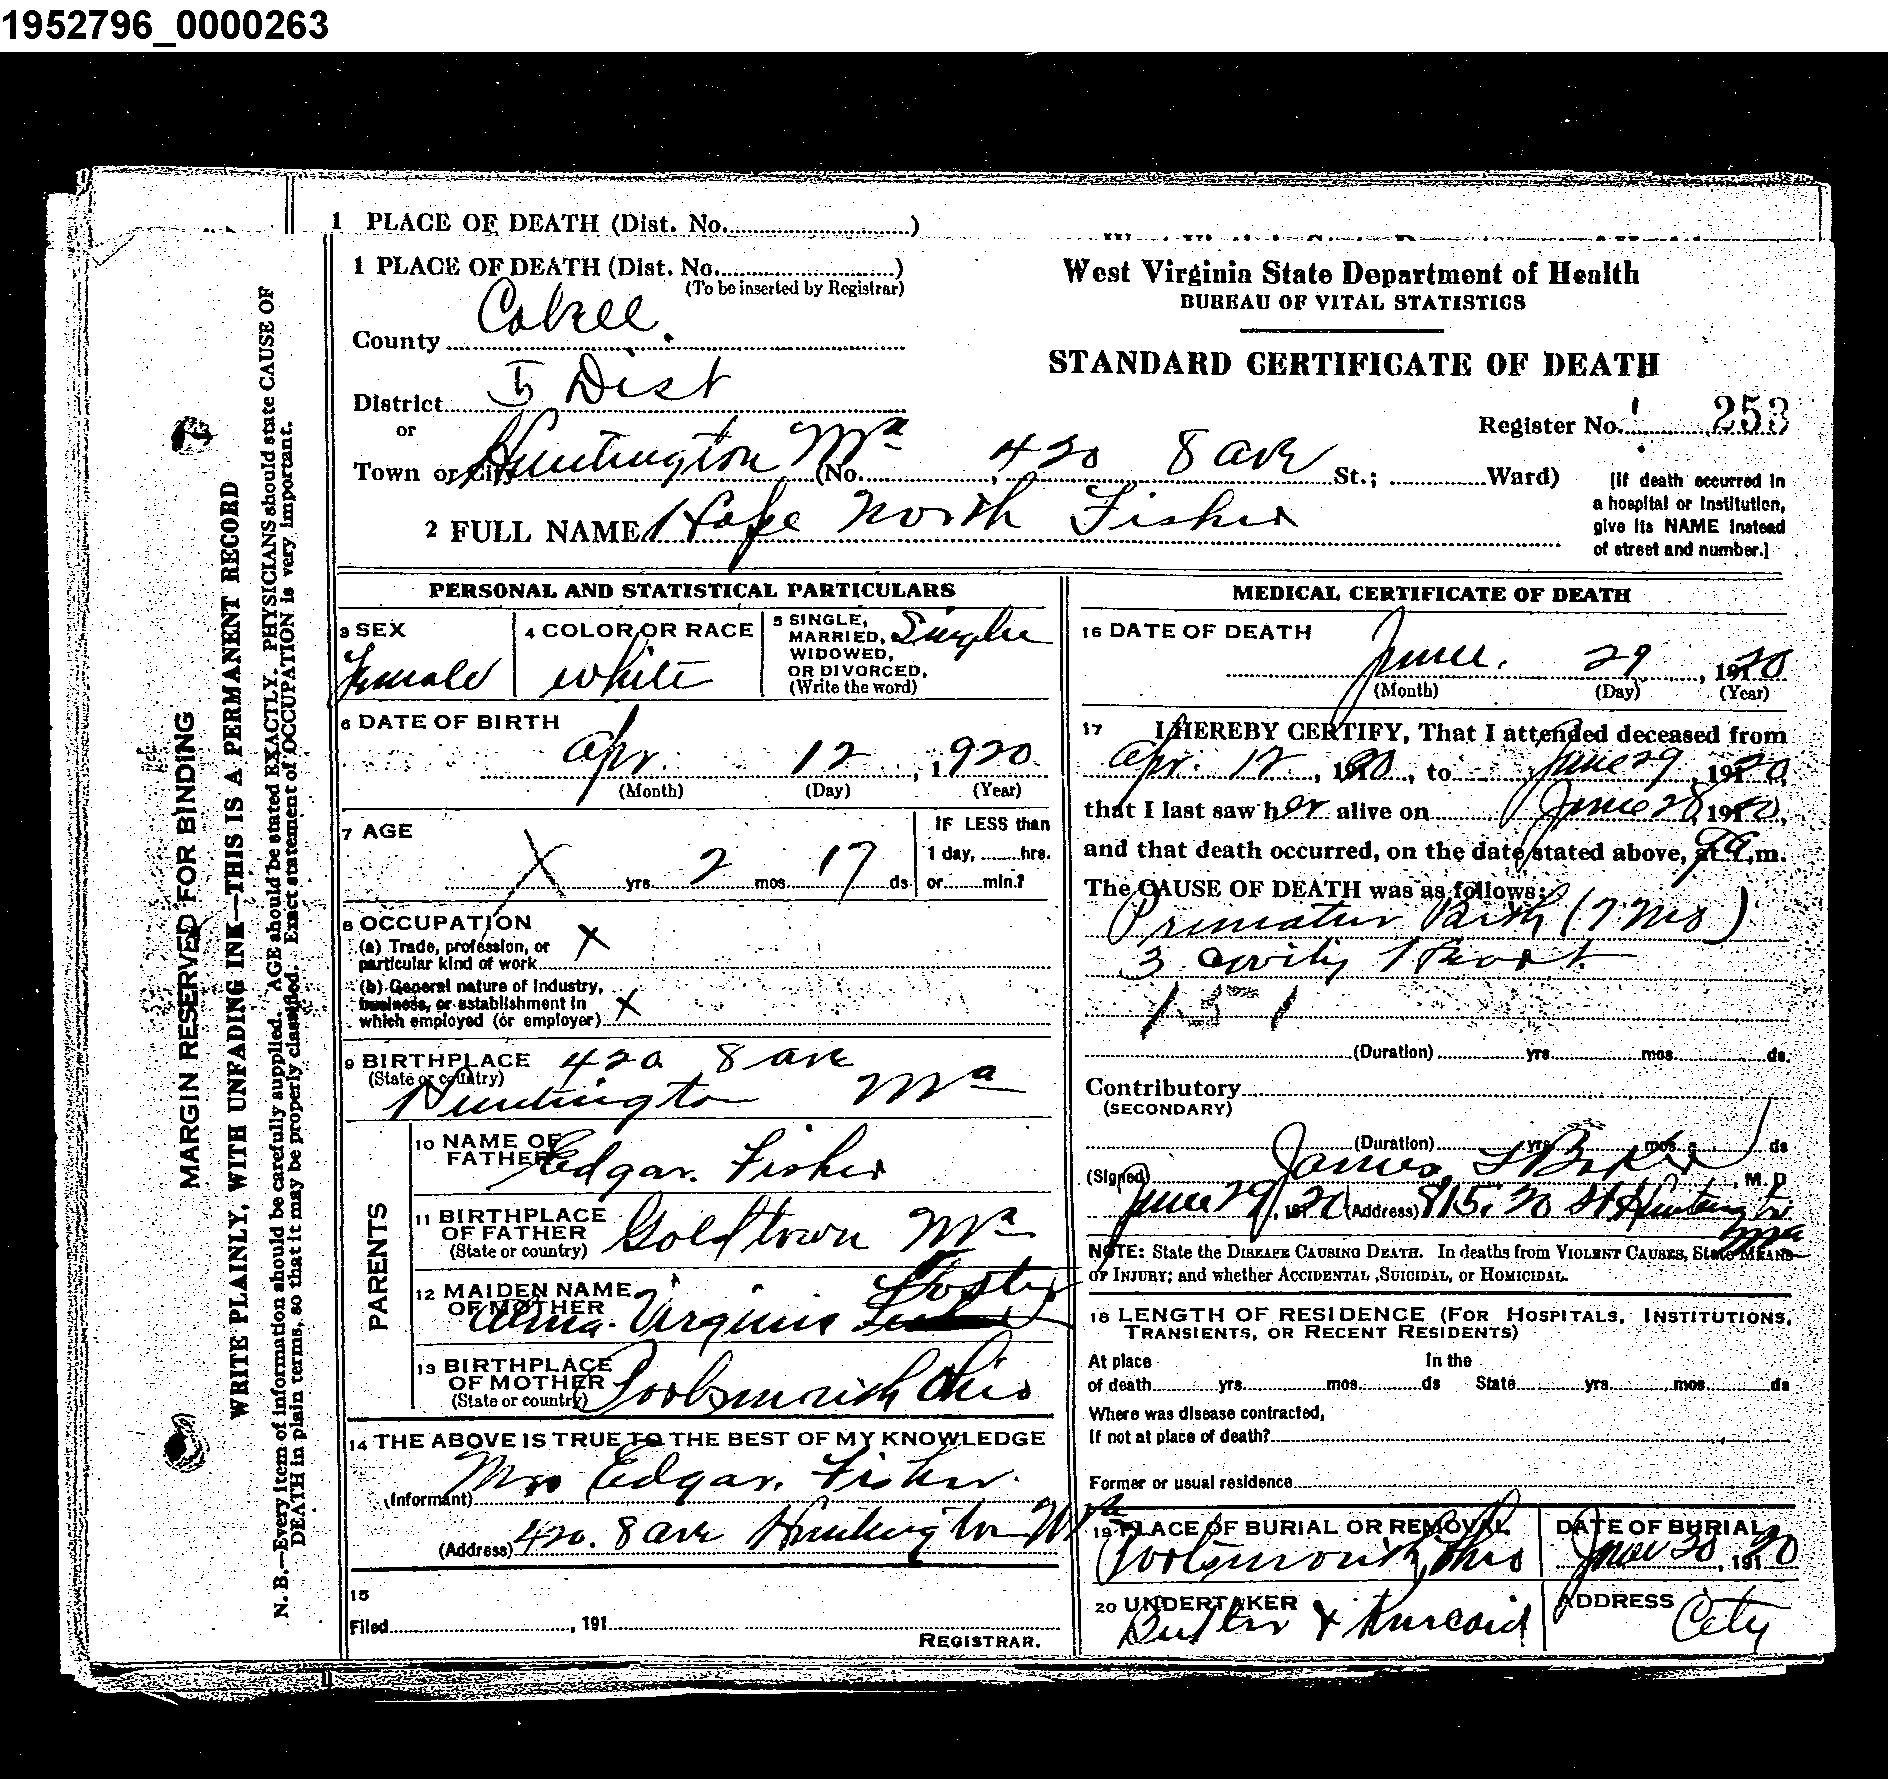 1952796_0000263
1 PLACE OF DEATH (Dist. No. )
1 PLACE OF DEATH (Dist. No. )
(To be inserted by Registrar)
County Cabell
District 5 Dist
or
Town or City Huntington Wva (No. 420 8 ave St.; Ward)
2 FULL NAME Hope North Fisher
West Virginia State Department of Health
BUREAU OF VITAL STATISTICS
STANDARD CERTIFICATE OF DEATH
Register No. 253
[If death occurred in
a hospital or institution,
give its NAME instead
of street and number.]
PERSONAL AND STATISTICAL PARTICULARS
3 SEX
Female
4 COLOR OR RACE
White
5 SINGLE,
MARRIED,
WIDOWED,
OR DIVORCED,
(Write the word)
Single
6 DATE OF BIRTH
Apr. 12, 1920
(Month) (Day) (Year)
7 AGE
X yrs. 2 mos. 17 ds.
IF LESS than
1 day, hrs.
or min.?
8 OCCUPATION
(a) Trade, profession, or
particular kind of work X
(b) General nature of industry,
business, or establishment in
which employed (or employer) X
9 BIRTHPLACE 420 8 ave
(State or country)
Huntington Wva
PARENTS
10 NAME OF
FATHER Edgar Fisher
11 BIRTHPLACE
OF FATHER
(State or country) Goldtown Wva
12 MAIDEN NAME
OF MOTHER
Alma Virginia Foster
13 BIRTHPLACE
OF MOTHER
(State or country) Portsmouth Ohio
14 THE ABOVE IS TRUE TO THE BEST OF MY KNOWLEDGE
(Informant) Mrs Edgar Fisher
(Address) 420. 8 ave Huntington Wva
15
Filed , 191
REGISTRAR.
MEDICAL CERTIFICATE OF DEATH
16 DATE OF DEATH
June. 29, 1920
(Month) (Day) (Year)
17 I HEREBY CERTIFY, That I attended deceased from
Apr. 12, 1920, to June 29, 1920,
that I last saw her alive on June 28, 1920,
and that death occurred, on the date stated above, at m.
The CAUSE OF DEATH was as follows:
Prematur Birth (7 mo)
3 cavity Heart
151
(Duration) yrs. mos. ds.
Contributory
(SECONDARY)
(Duration) yrs. mos. ds
(Signed) James Baker, M. D
June 29, 1920 (Address) 815. 20 St Huntington
Wva
NOTE: State the DISEASE CAUSING DEATH. In deaths from VIOLENT CAUSES, State MEANS
OF INJURY; and whether ACCIDENTAL, SUICIDAL, or HOMICIDAL.
18 LENGTH OF RESIDENCE (FOR HOSPITALS, INSTITUTIONS,
TRANSIENTS, OR RECENT RESIDENTS)
At place In the
of death yrs. mos. ds State yrs. mos. ds
Where was disease contracted,
If not at place of death?
Former or usual residence
19 PLACE OF BURIAL OR REMOVAL
Portsmouth, Ohio
DATE OF BURIAL
June 30, 1920
20 UNDERTAKER
Butler & Kincaid
ADDRESS
City
MARGIN RESERVED FOR BINDING
WRITE PLAINLY, WITH UNFADING INK—THIS IS A PERMANENT RECORD
N. B.—Every item of information should be carefully supplied. AGE should be stated EXACTLY. PHYSICIANS should state CAUSE OF
DEATH in plain terms, so that it may be properly classified. Exact statement of OCCUPATION is very important.